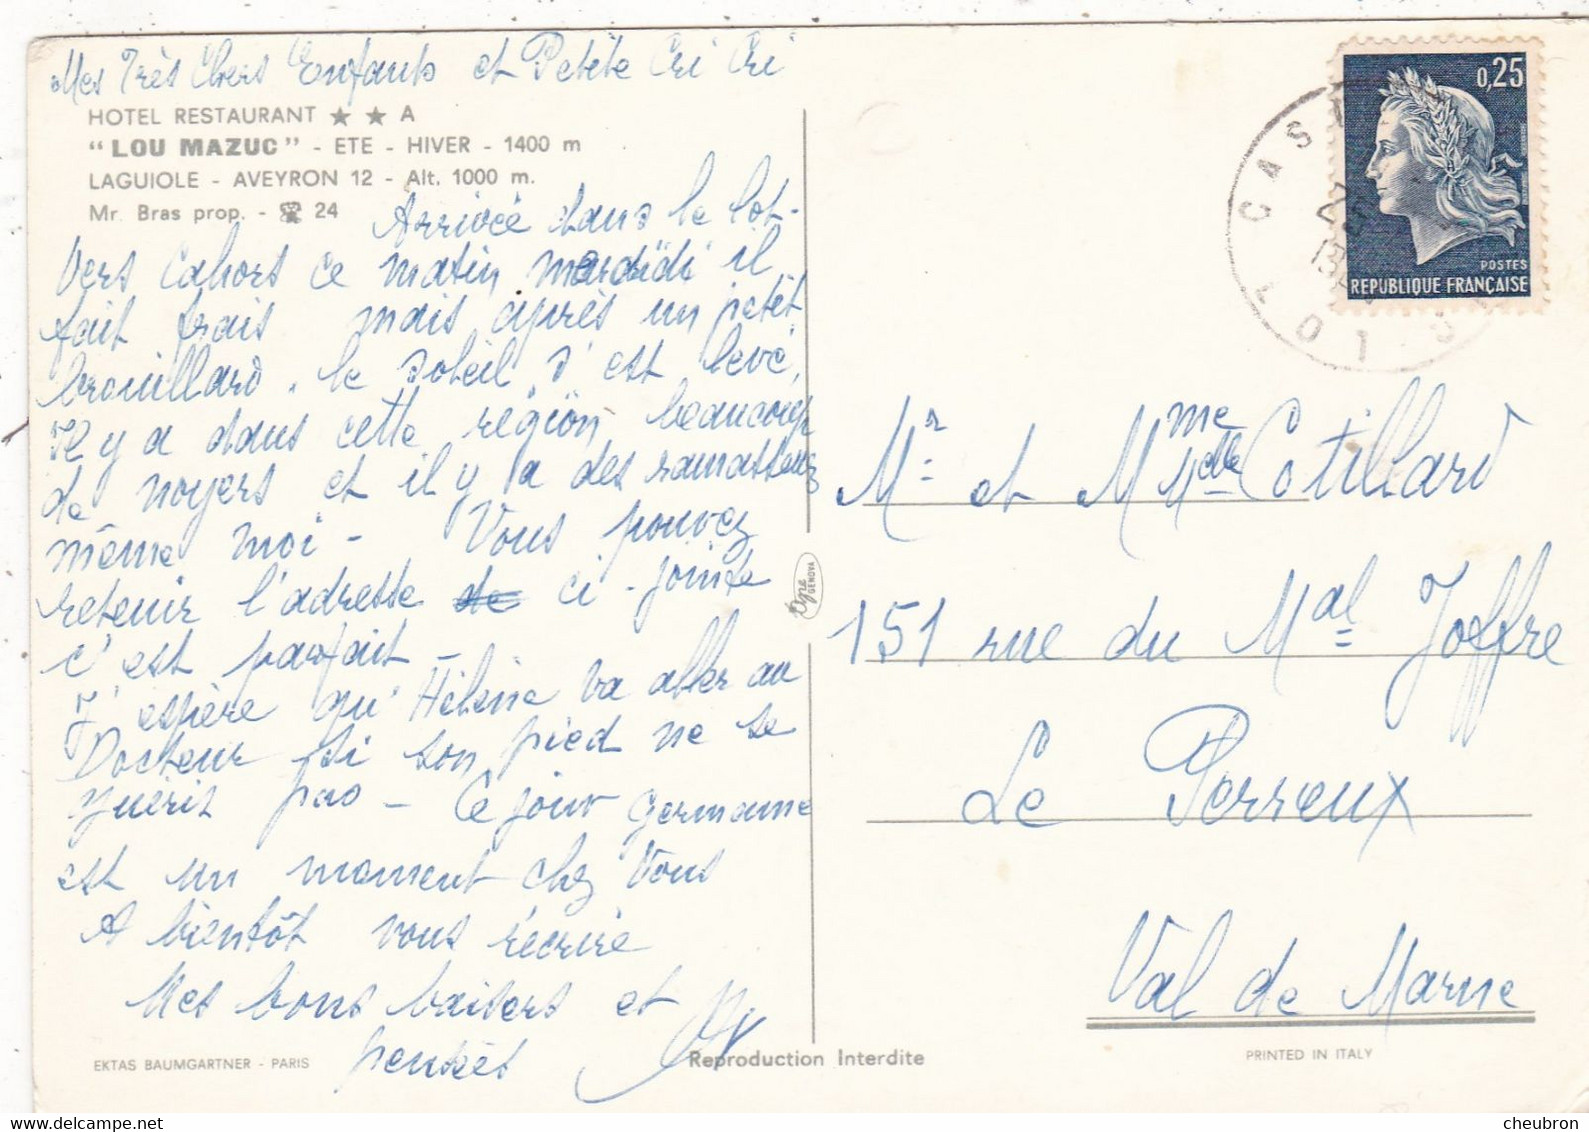 Mes Très Chers Enfants et Petite Cri Cri
HOTEL RESTAURANT ★ ★ A
"LOU MAZUC" - ETE - HIVER - 1400 m
LAGUIOLE - AVEYRON 12 - Alt. 1000 m.
Mr. Bras prop. - ☎ 24
Arrivée dans le lot-
Vers Cahors ce matin mardi il
fait frais mais après un petit
brouillard. le soleil s'est levé,
Il y a dans cette région beaucoup
de noyers et il y a des ramasseurs
même moi - Vous pouvez
retenir l'adresse ci-jointe
c'est parfait -
J'espère qu'Hélène va aller au
Docteur si son pied ne se
guérit pas - Ce jour Germaine
est un moment chez Vous
A bientôt vous récrire
Mes bons baisers et
pensées
EKTAS BAUMGARTNER - PARIS
Reproduction Interdite
PRINTED IN ITALY
GENOVA
0,25
POSTES
REPUBLIQUE FRANÇAISE
LOT
Mr et Mme Cotillard
151 rue du Mal Joffre
Le Perreux
Val de Marne
www.delcampe.net
cheubron